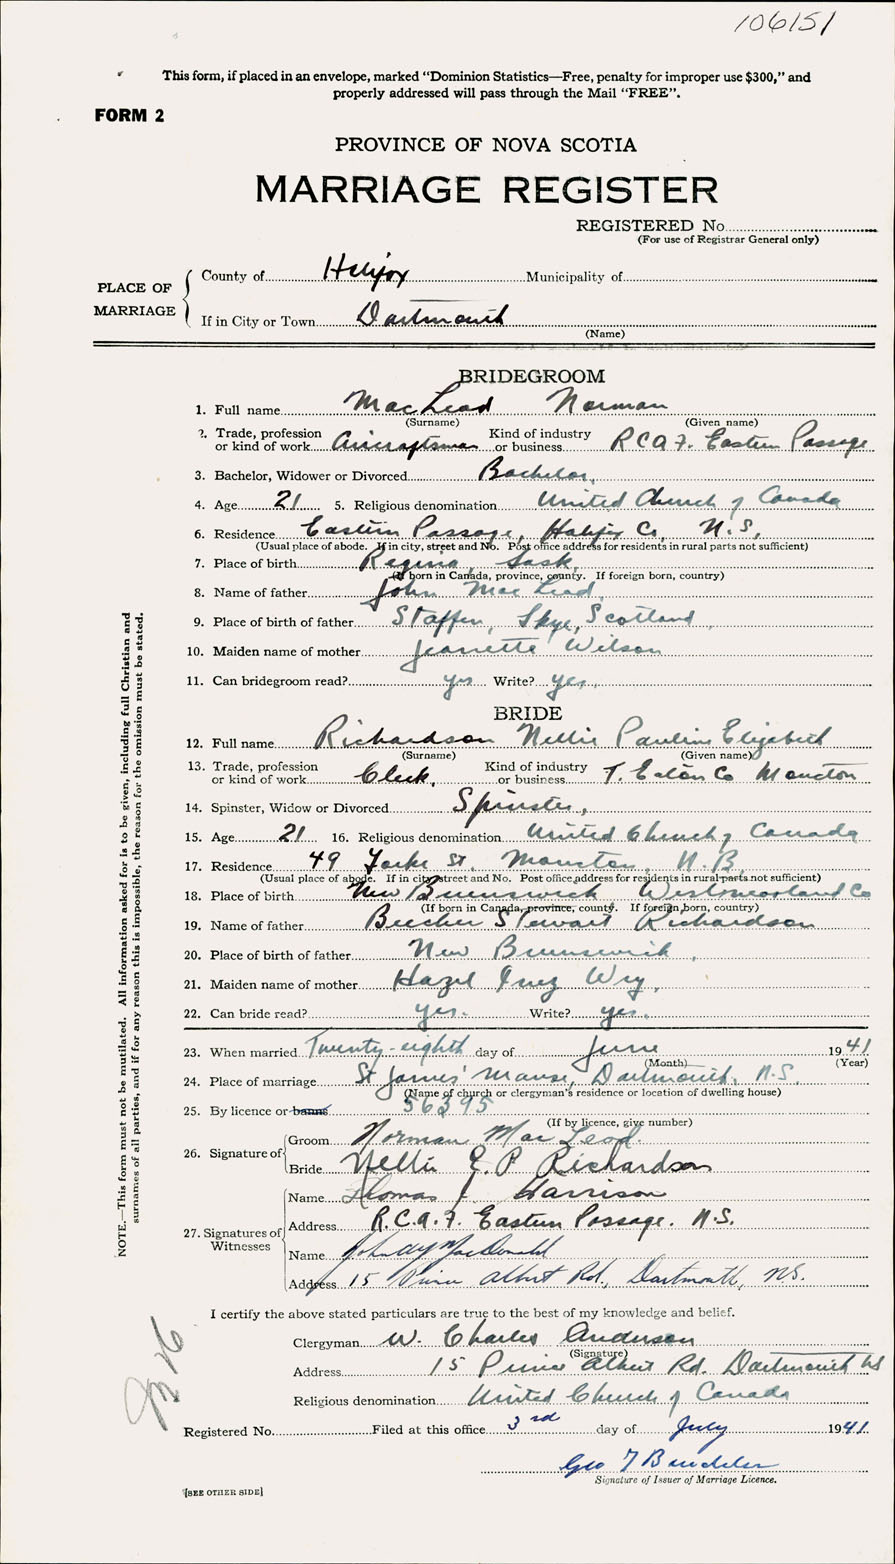 106151
This form, if placed in an envelope, marked “Dominion Statistics—Free, penalty for improper use $300,” and
properly addressed will pass through the Mail “FREE”.
FORM 2
PROVINCE OF NOVA SCOTIA
MARRIAGE REGISTER
REGISTERED No.
(For use of Registrar General only)
PLACE OF MARRIAGE
County of Halifax Municipality of
If in City or Town Dartmouth
(Name)
BRIDEGROOM
1. Full name MacLeod Norman
(Surname) (Given name)
2. Trade, profession or kind of work Aircraftsman Kind of industry or business RCAF. Eastern Passage
3. Bachelor, Widower or Divorced Bachelor.
4. Age 21 5. Religious denomination United Church of Canada
6. Residence Eastern Passage, Halifax Co, N.S,
(Usual place of abode. If in city, street and No. Post office address for residents in rural parts not sufficient)
7. Place of birth Regina, Sask,
(If born in Canada, province, county. If foreign born, country)
8. Name of father John MacLeod,
9. Place of birth of father Staffin, Skye, Scotland,
10. Maiden name of mother Jeanette Wilson
11. Can bridegroom read? yes Write? yes,
BRIDE
12. Full name Richardson Nellie Pauline Elizabeth
(Surname) (Given name)
13. Trade, profession or kind of work Clerk, Kind of industry or business T. Eaton Co Moncton
14. Spinster, Widow or Divorced Spinster,
15. Age 21 16. Religious denomination United Church of Canada
17. Residence 49 St, Moncton, N.B,
(Usual place of abode. If in city street and No. Post office address for residents in rural parts not sufficient)
18. Place of birth New Brunswick Westmorland Co
(If born in Canada, province, county. If foreign born, country)
19. Name of father Beecher Stewart Richardson
20. Place of birth of father New Brunswick,
21. Maiden name of mother Hazel Inez Wry,
22. Can bride read? yes. Write? yes.
23. When married Twenty-eighth day of June 1941
(Month) (Year)
24. Place of marriage St James' Manse, Dartmouth, N.S.
(Name of church or clergyman's residence or location of dwelling house)
25. By licence or banns 56395
(If by licence, give number)
26. Signature of
Groom Norman MacLeod.
Bride Nellie E. P. Richardson
27. Signatures of Witnesses
Name Thomas J. Harrison
Address R.C.A.F. Eastern Passage. N.S.
Name MacDonald
Address 15 Prince Albert Rd., Dartmouth, NS.
I certify the above stated particulars are true to the best of my knowledge and belief.
Clergyman W. Charles Anderson
(Signature)
Address 15 Prince Albert Rd. Dartmouth NS
Religious denomination United Church of Canada
Registered No. Filed at this office 3rd day of July 1941
Geo
Signature of Issuer of Marriage Licence.
[SEE OTHER SIDE]
NOTE.—This form must not be mutilated. All information asked for is to be given, including full Christian and
surnames of all parties, and if for any reason this is impossible, the reason for the omission must be stated.